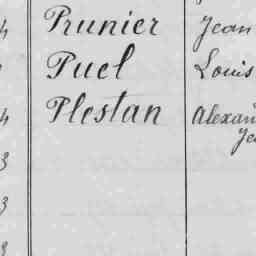 4 Prunier Jean
Puel Louis
4 Plestan Alexan
Je
3
3
3